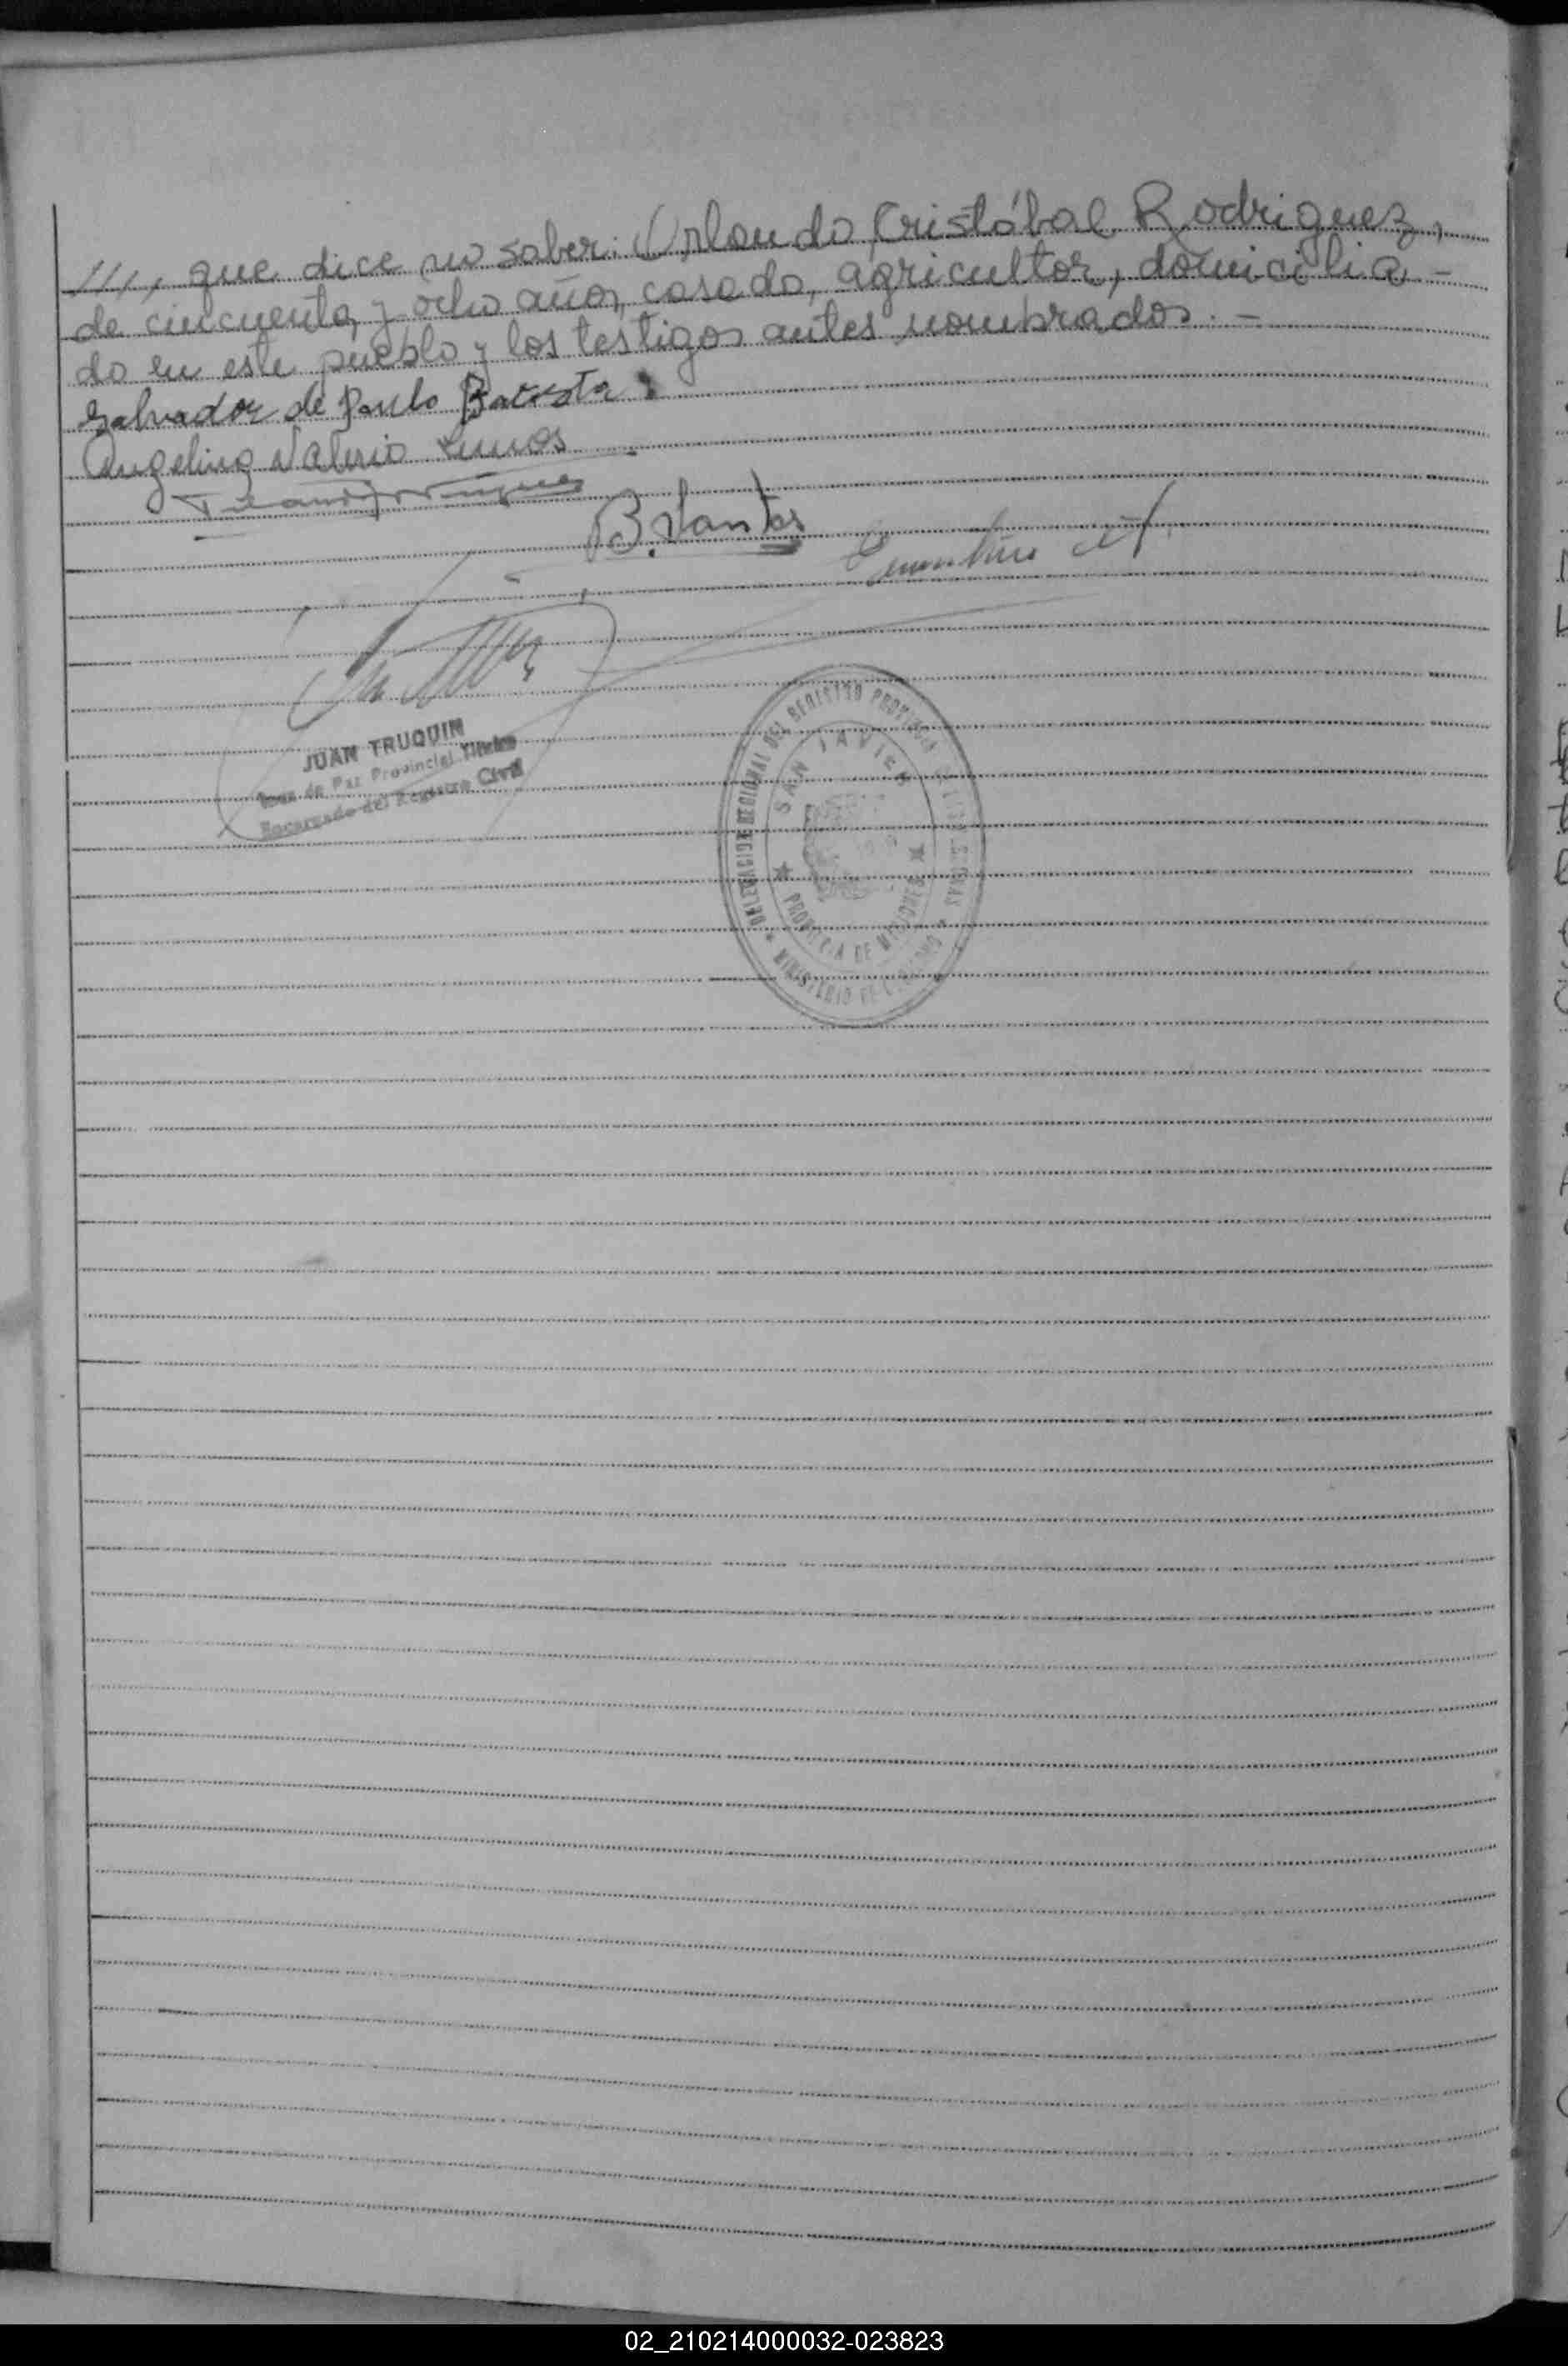 ////, que dice no saber: Orlando Cristóbal Rodriguez,
de cincuenta y ocho años, casado, agricultor, domicilia-
do en este pueblo y los testigos antes nombrados. -
Salvador de Paulo Batista
Angelino Valerio Lemos
B. Santos
JUAN TRUQUIN
Juez de Paz Provincial Titular
Encargado del Registro Civil
DELEGACION SECCIONAL DEL REGISTRO PROVINCIAL DE LAS PERSONAS
SAN JAVIER
PROVINCIA DE MISIONES
MINISTERIO DE GOBIERNO
02_210214000032-023823